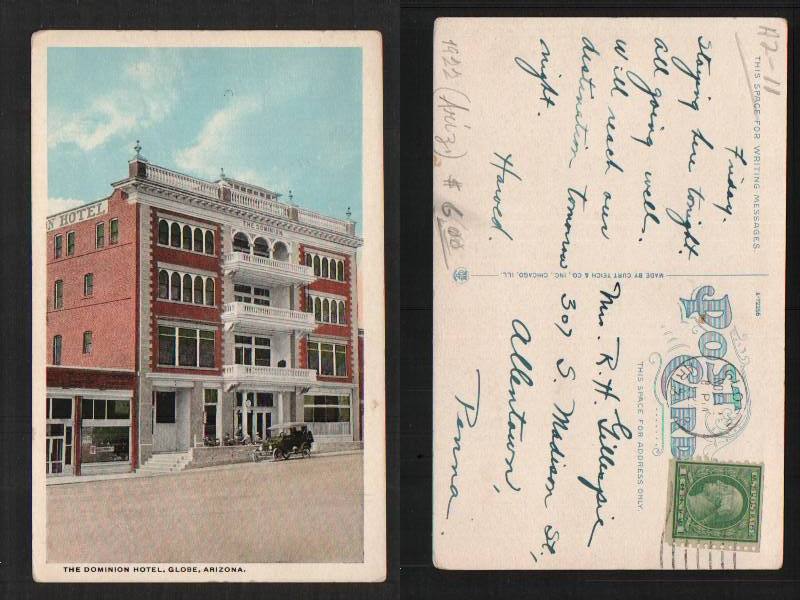 N HOTEL
THE DOMINION
THE DOMINION HOTEL, GLOBE, ARIZONA.
H2-11
THIS SPACE FOR WRITING MESSAGES
Friday.
Staying here tonight.
all going well.
will reach our
destination tomorrow
night.
Harold.
1922 (Ariz) $6.00
MADE BY CURT TEICH & CO., INC., CHICAGO, ILL.
POST CARD
THIS SPACE FOR ADDRESS ONLY.
Mrs. R. H. Gillespie
307 S. Madison St,
Allentown,
Penna.
U.S. POSTAGE
1 CENT 1